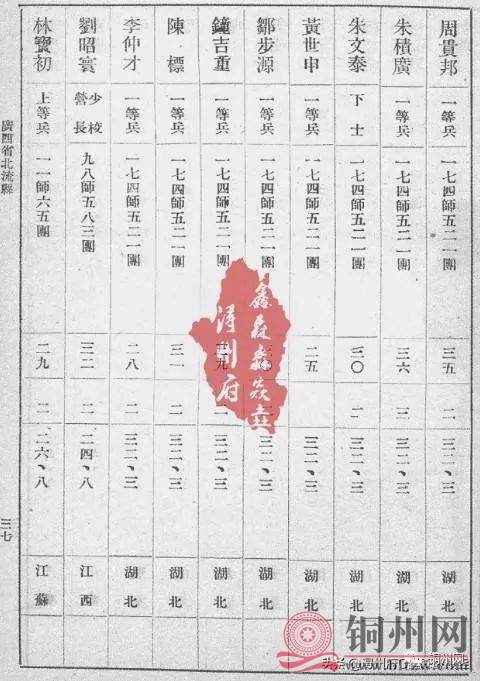 周貴邦 一等兵 一七四師五二一團 三五 二 三二、三 湖北
朱積廣 一等兵 一七四師五二一團 三六 三 三二、三 湖北
朱文泰 下士 一七四師五二一團 三〇 二 三二、三 湖北
黃世申 一等兵 一七四師五二一團 二五 三二、三 湖北
鄒步源 一等兵 一七四師五二一團 三二、三 湖北
鐘吉重 一等兵 一七四師五二一團 三二、三 湖北
陳標 一等兵 一七四師五二一團 三一 二 三二、三 湖北
李仲才 一等兵 一七四師五二一團 二八 二 三二、三 湖北
劉昭寰 少校營長 九八師五八三團 三二 二 二四、八 江西
林寶初 上等兵 一一師六五團 二九 二 二六、八 江蘇
廣西省北流縣
三七
鑫森淼焱垚
潯州府
铜州网